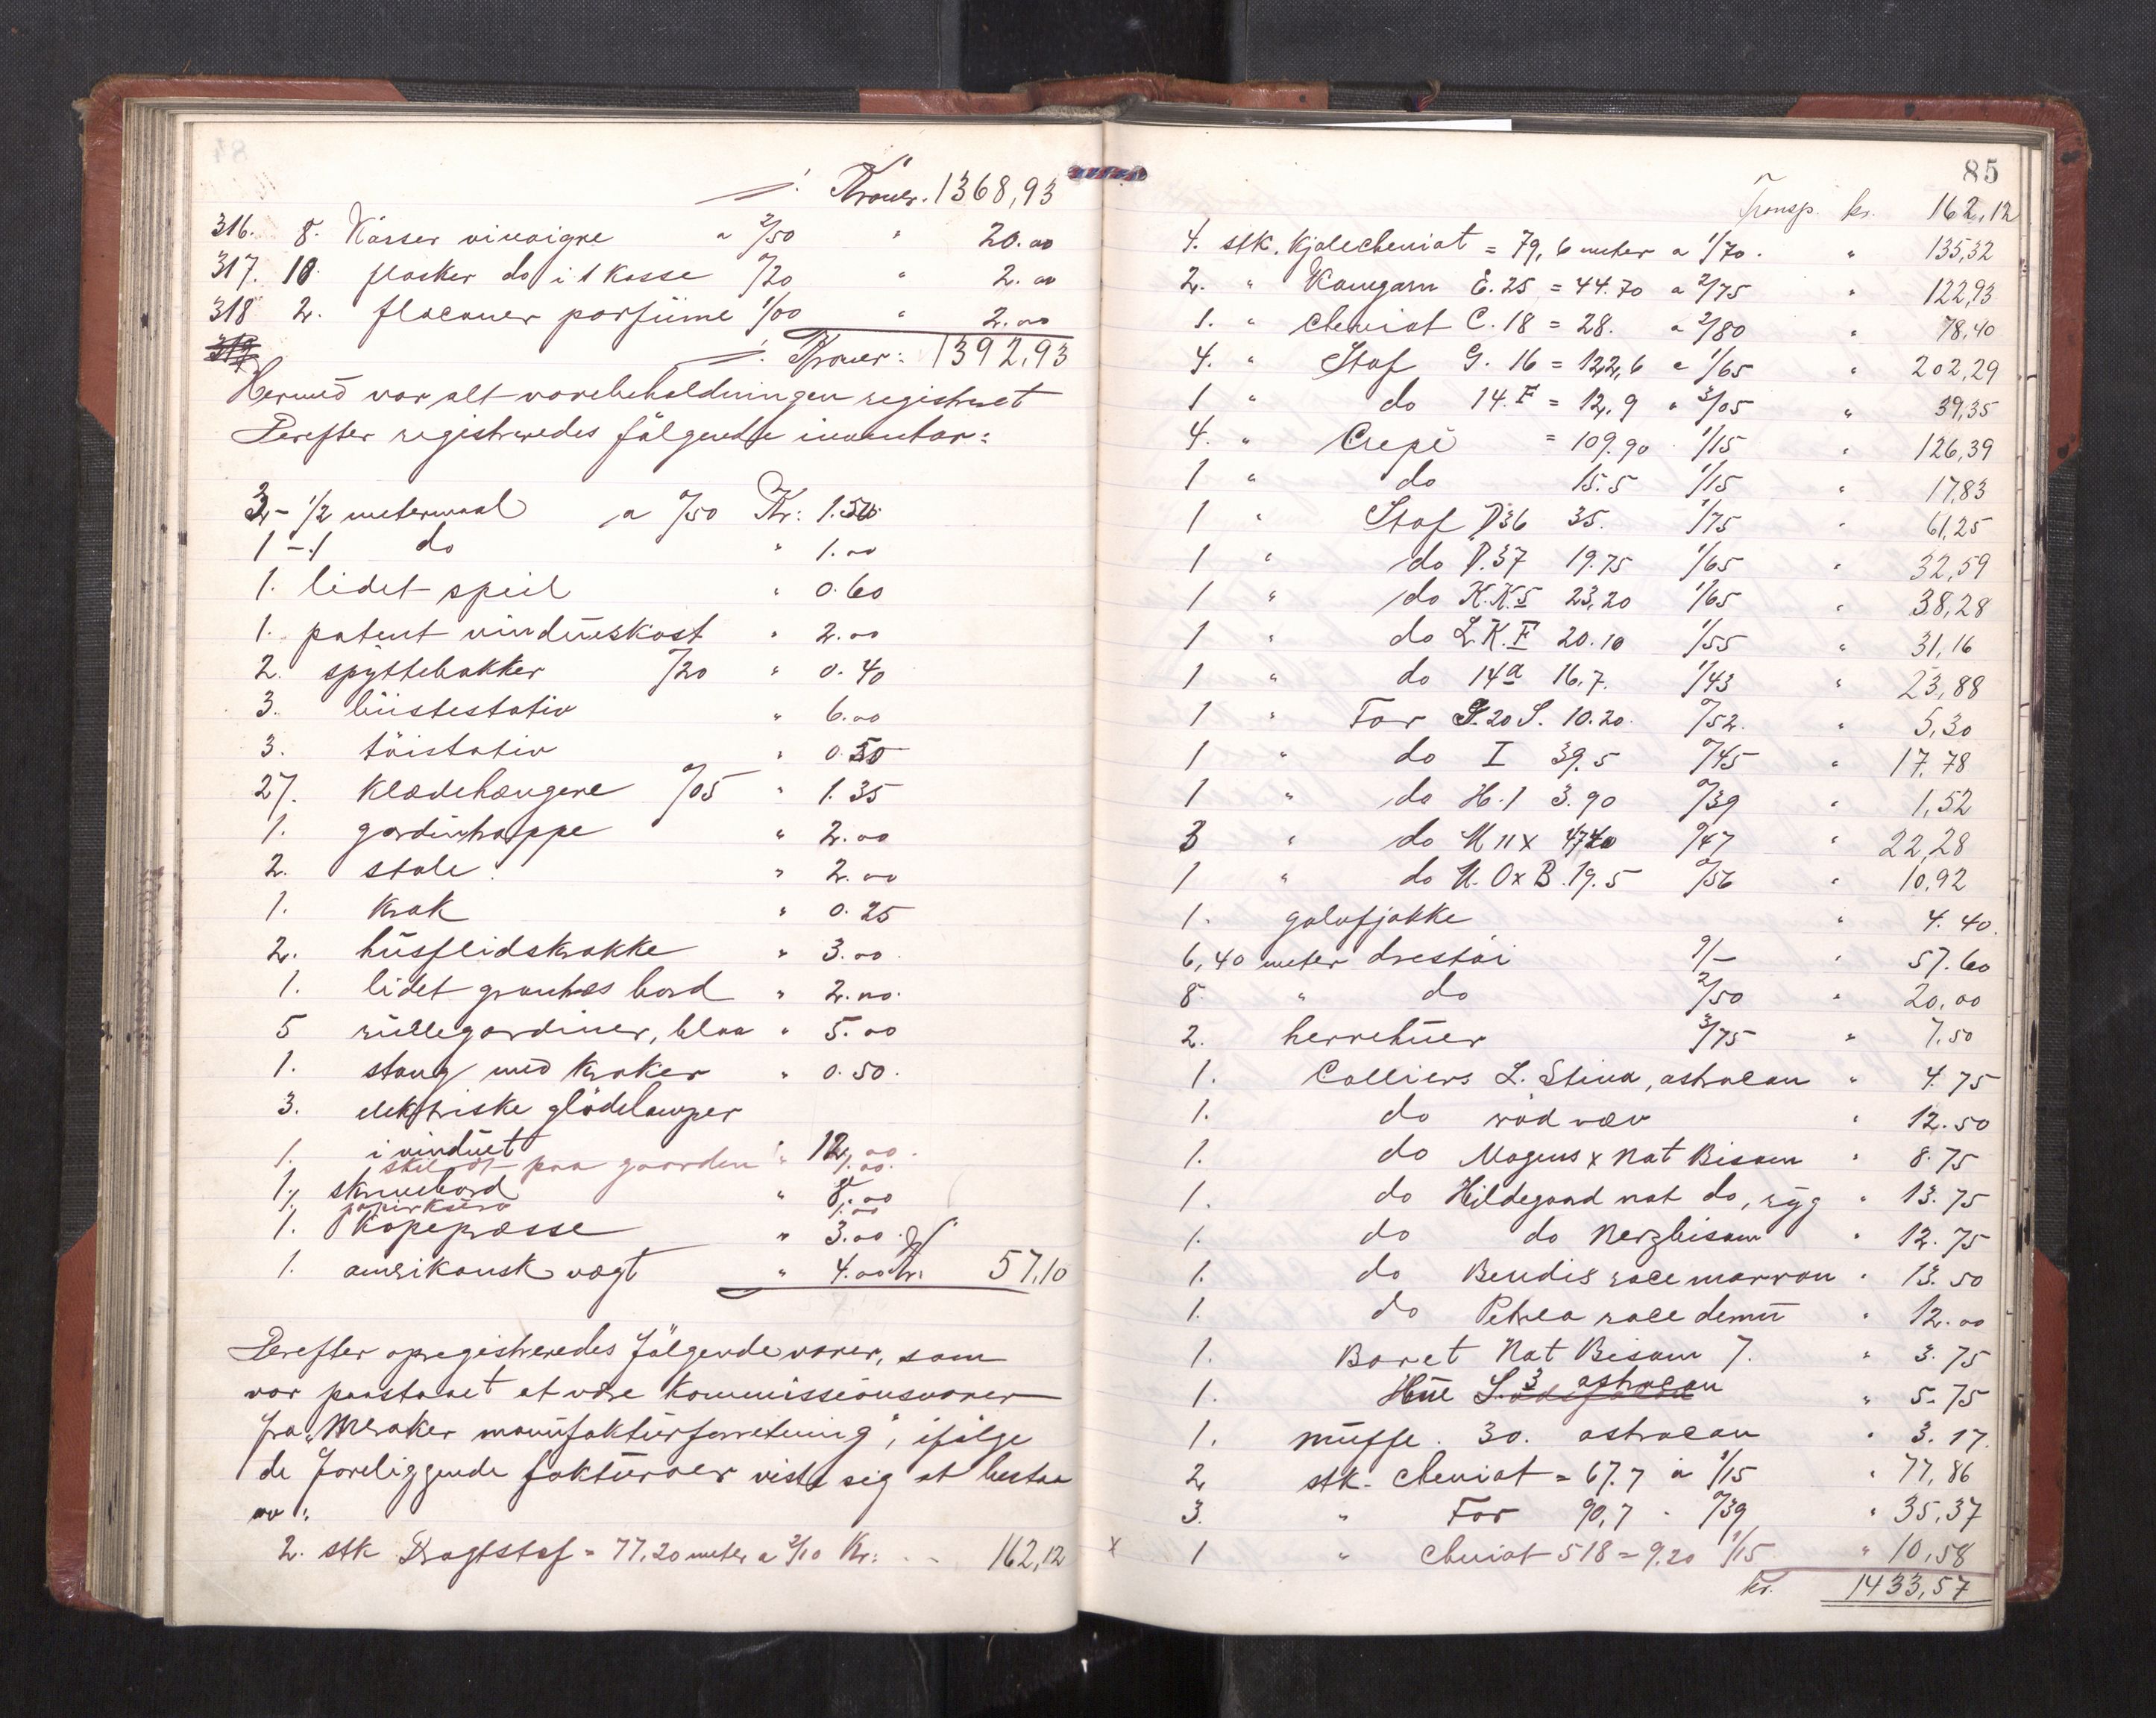 ./. Kroner. 1368,93
316. 8. Kasser vinaigre a 2/50 " 20.00
317. 10 flasker do i 1 kasse 0/20 " 2.00
318 2. flaconer parfüme 1/00 " 2.00
319
./. Kroner: 1392,93
Hermed var alt varebeholdningen registreret
Derefter registreredes følgende inventar:
3 - 1/2 metermaal a 0/50 Kr: 1.50
1 - 1 do " 1.00
1. lidet speil " 0.60
1. patent vindüeskost " 2.00
2. spyttebakker 0/20 " 0.40
3. büistestativ " 6.00
3. töistativ " 0.50
27. klædehængere 0/05 " 1.35
1. gardintrappe " 2.00
2. stole. " 2.00
1. Krak " 0.25
2. hüsflidskrakke " 3.00
1. lidet granhæs bord " 2.00.
5 rüllegardiner, blaa " 5.00
1. stang med kroker " 0.50.
3. elektriske glödelamper
i vindüet " 12.00
1. skildt paa gaarden " 1.00.
1. skrivebord " 8.00
1 papirkürv 1.00
1. Kopepresse " 3.00
1. amerikansk vægt " 4.00 Kr. 57,10
Derefter opregistreredes følgende varer, som
var paastaaet at være Kommissionsvarer
fra "Meraker manüfaktürforretning", ifølge
de foreliggende faktüraer viste sig at bestaa
av:
2. stk Dragtstof = 77,20 meter a 2/10 Kr: 162,12
85
Transp. kr. 162,12
4. stk. Kjolecheviot = 79,6 meter a 1/70. " 135,32
2. " Kamgarn E.25 = 44.70 a 2/75 " 122,93
1. " Cheviot C.18 = 28. a 2/80 " 78,40
4. " Stof G.16 = 122,6 a 1/65 " 202,29
1 " do 14.F = 12,9 " 3/05 " 39,35
4. " Crepe = 109.90 1/15 " 126,39
1 " do 15.5 1/15 " 17,83
1 " Stof D36 35. 1/75 " 61,25
1 " do D.37 19.75 1/65 " 32,59
1 " do K.K.S 23,20 1/65 " 38,28
1 " do L.K.F 20.10 1/55 " 31,16
1 " do 14a 16.7. 1/43 " 23,88
1 " For S.20 S. 10.20. 0/52. " 5,30
1 " do I 39.5 0/45 " 17,78
1 " do H.1 3.90 0/39 " 1,52
3 " do M 11 x 47,40 0/47 " 22,28
1 " do U.O x B. 19.5 0/56 " 10,92
1. golvfjakke " 4.40.
6,40 meter drestøi 9/- " 57.60
8 " do 2/50 " 20,00
2. herrehüer 3/75 " 7,50
1. Colliers L. Stina, astracan " 4.75
1. do röd ræv " 12.50
1. do Magnus x nat Bisam " 8.75
1. do Hildegard nat do, ryg " 13.75
1. do do Nerzbisam " 12.75
1. do Bendis race marron " 13.50
1. do Petrea race demü " 12.00
1. Baret Nat Bisam 7. " 3.75
1. Hüe L. 3 astracan " 5.75
1. müffe. 30. astracan " 3.17.
2 stk. Cheviot = 67.7 a 1/15 " 77,86
3. " For 90,7 - 0/39 " 35,37
x 1 " Cheviot 518 = 9.20 1/15 " 10,58
kr. 1433,57